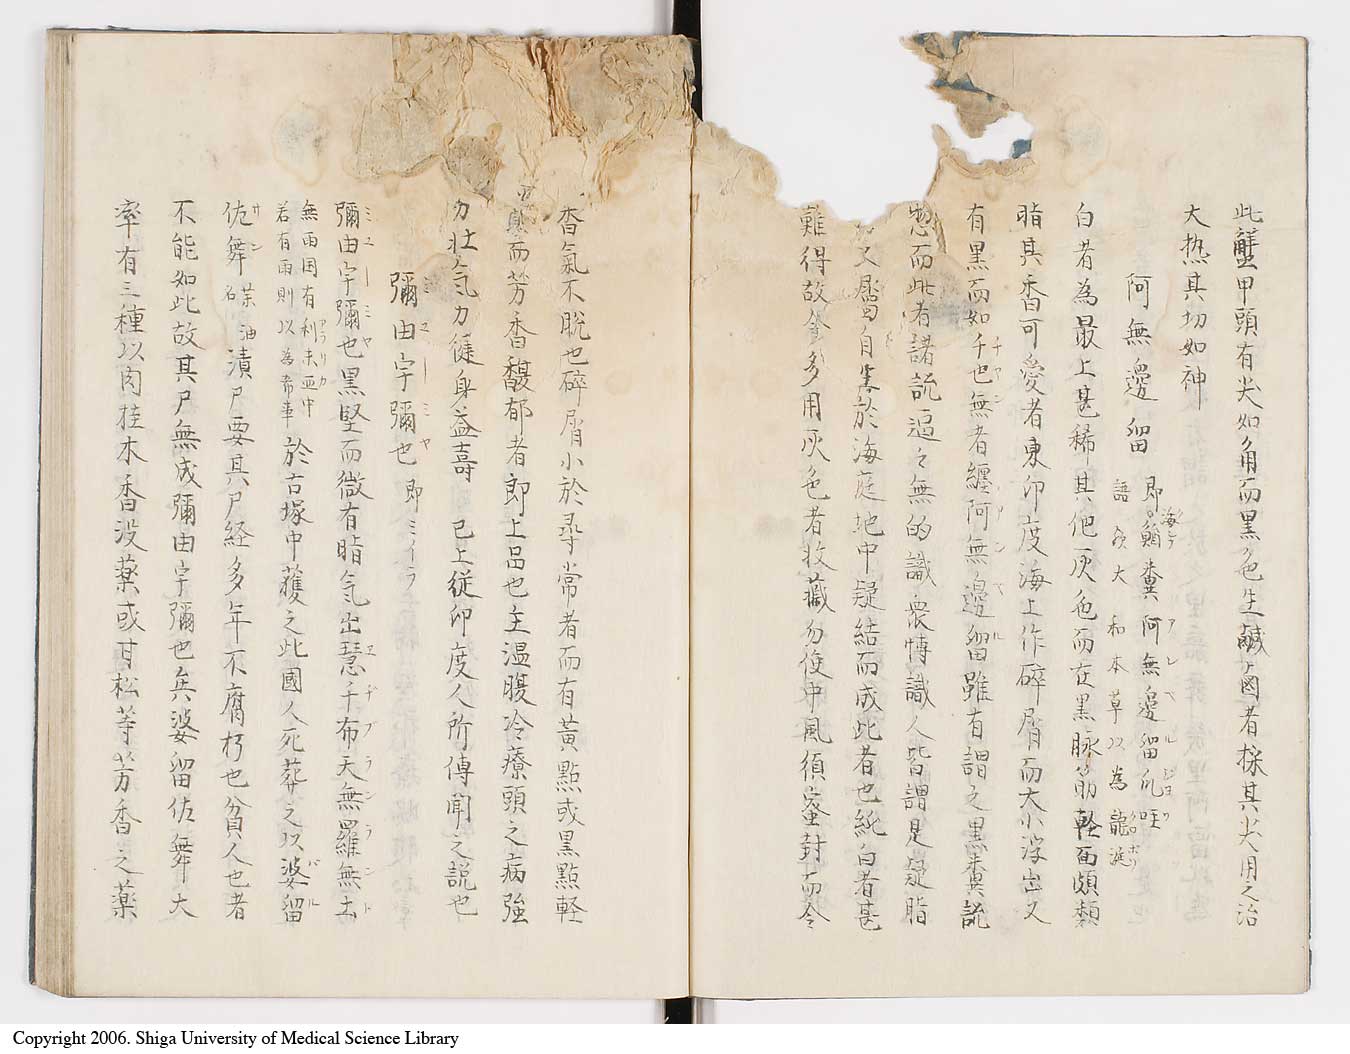 此蟹甲頭有尖如角而黒色生鹹鹵者採其尖用之治
大热其切如神
阿無邊留 即鯔糞阿無邊留瓜哇
語 大和本草以為龍涎
白者為最上甚稀其他灰色而在黒脉筋軽面頗類
脂其香可愛者東印度海上作碎屑而大小浮出又
有黒而如千也無者纏阿無邊留雖有謂之黒糞説
惣而此者諸説逼之無的識衆愽識人皆謂是疑脂
又 自 於海庭地中疑結而成此者也純白者甚
難得故今多用灰色者收藏勿使中風須蜜封而令
香氣不脱也碎屑小於尋常者而有黄點或黒點軽
真而芳香馥郁者即上品也主温腹冷療頭之病強
力壮気力健身益壽 已上従印度人所傳聞之説也
彌由宇彌也 即ミイラ
彌由宇彌也黒堅而微有脂気出慧千布天無羅無土
無雨国有利未亜中
若有雨則以為希事 於古塚中獲之此國人死葬之以婆留
佐舞 油漬尸要其尸経多年不腐朽也貧人也者
不能如此故其尸無成彌由宇彌也矣婆留佐舞大
率有三種以肉桂木香没薬或甘松等芳香之薬
Copyright 2006. Shiga University of Medical Science Library